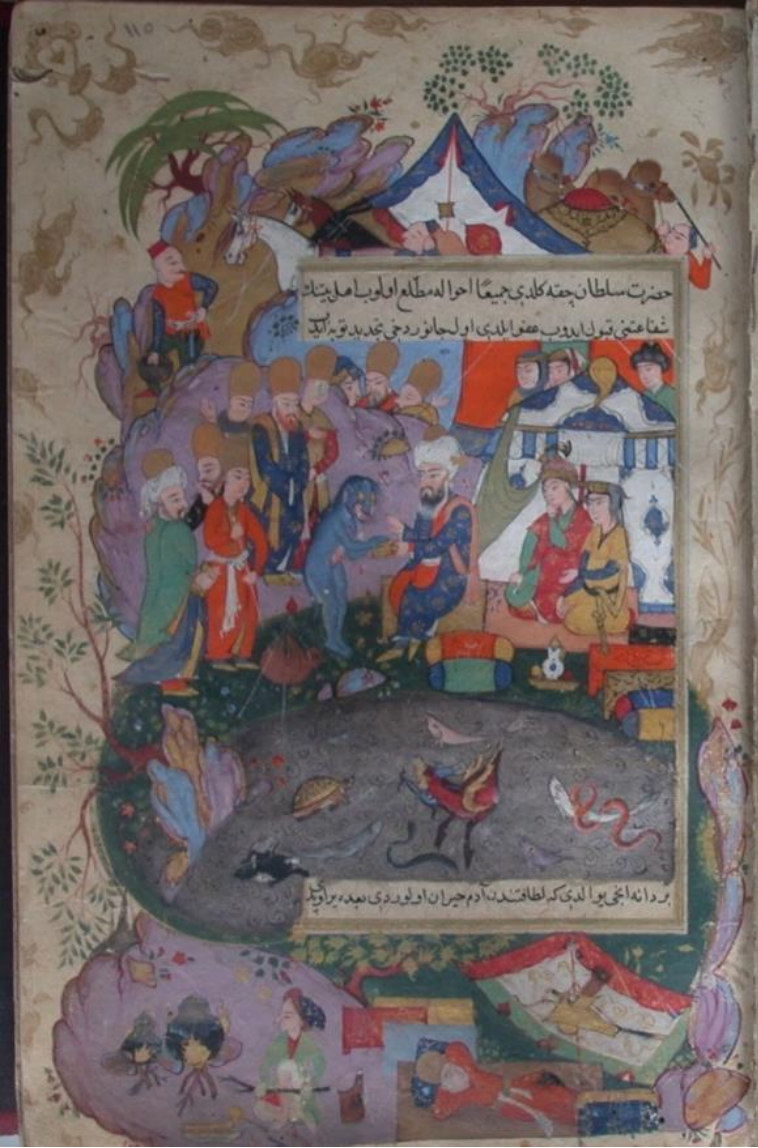 ١١٥
حضرت سلطان چقه كلدی جمیعا احواله مطلع اولوب اهل بیتنك
شفاعتنی قبول ایدوب عفو ایلدی اول جانور دخی تجدید توبه
بر دانه انجی یوالدی كه لطافتندن آدم حیران اولوردی بعده